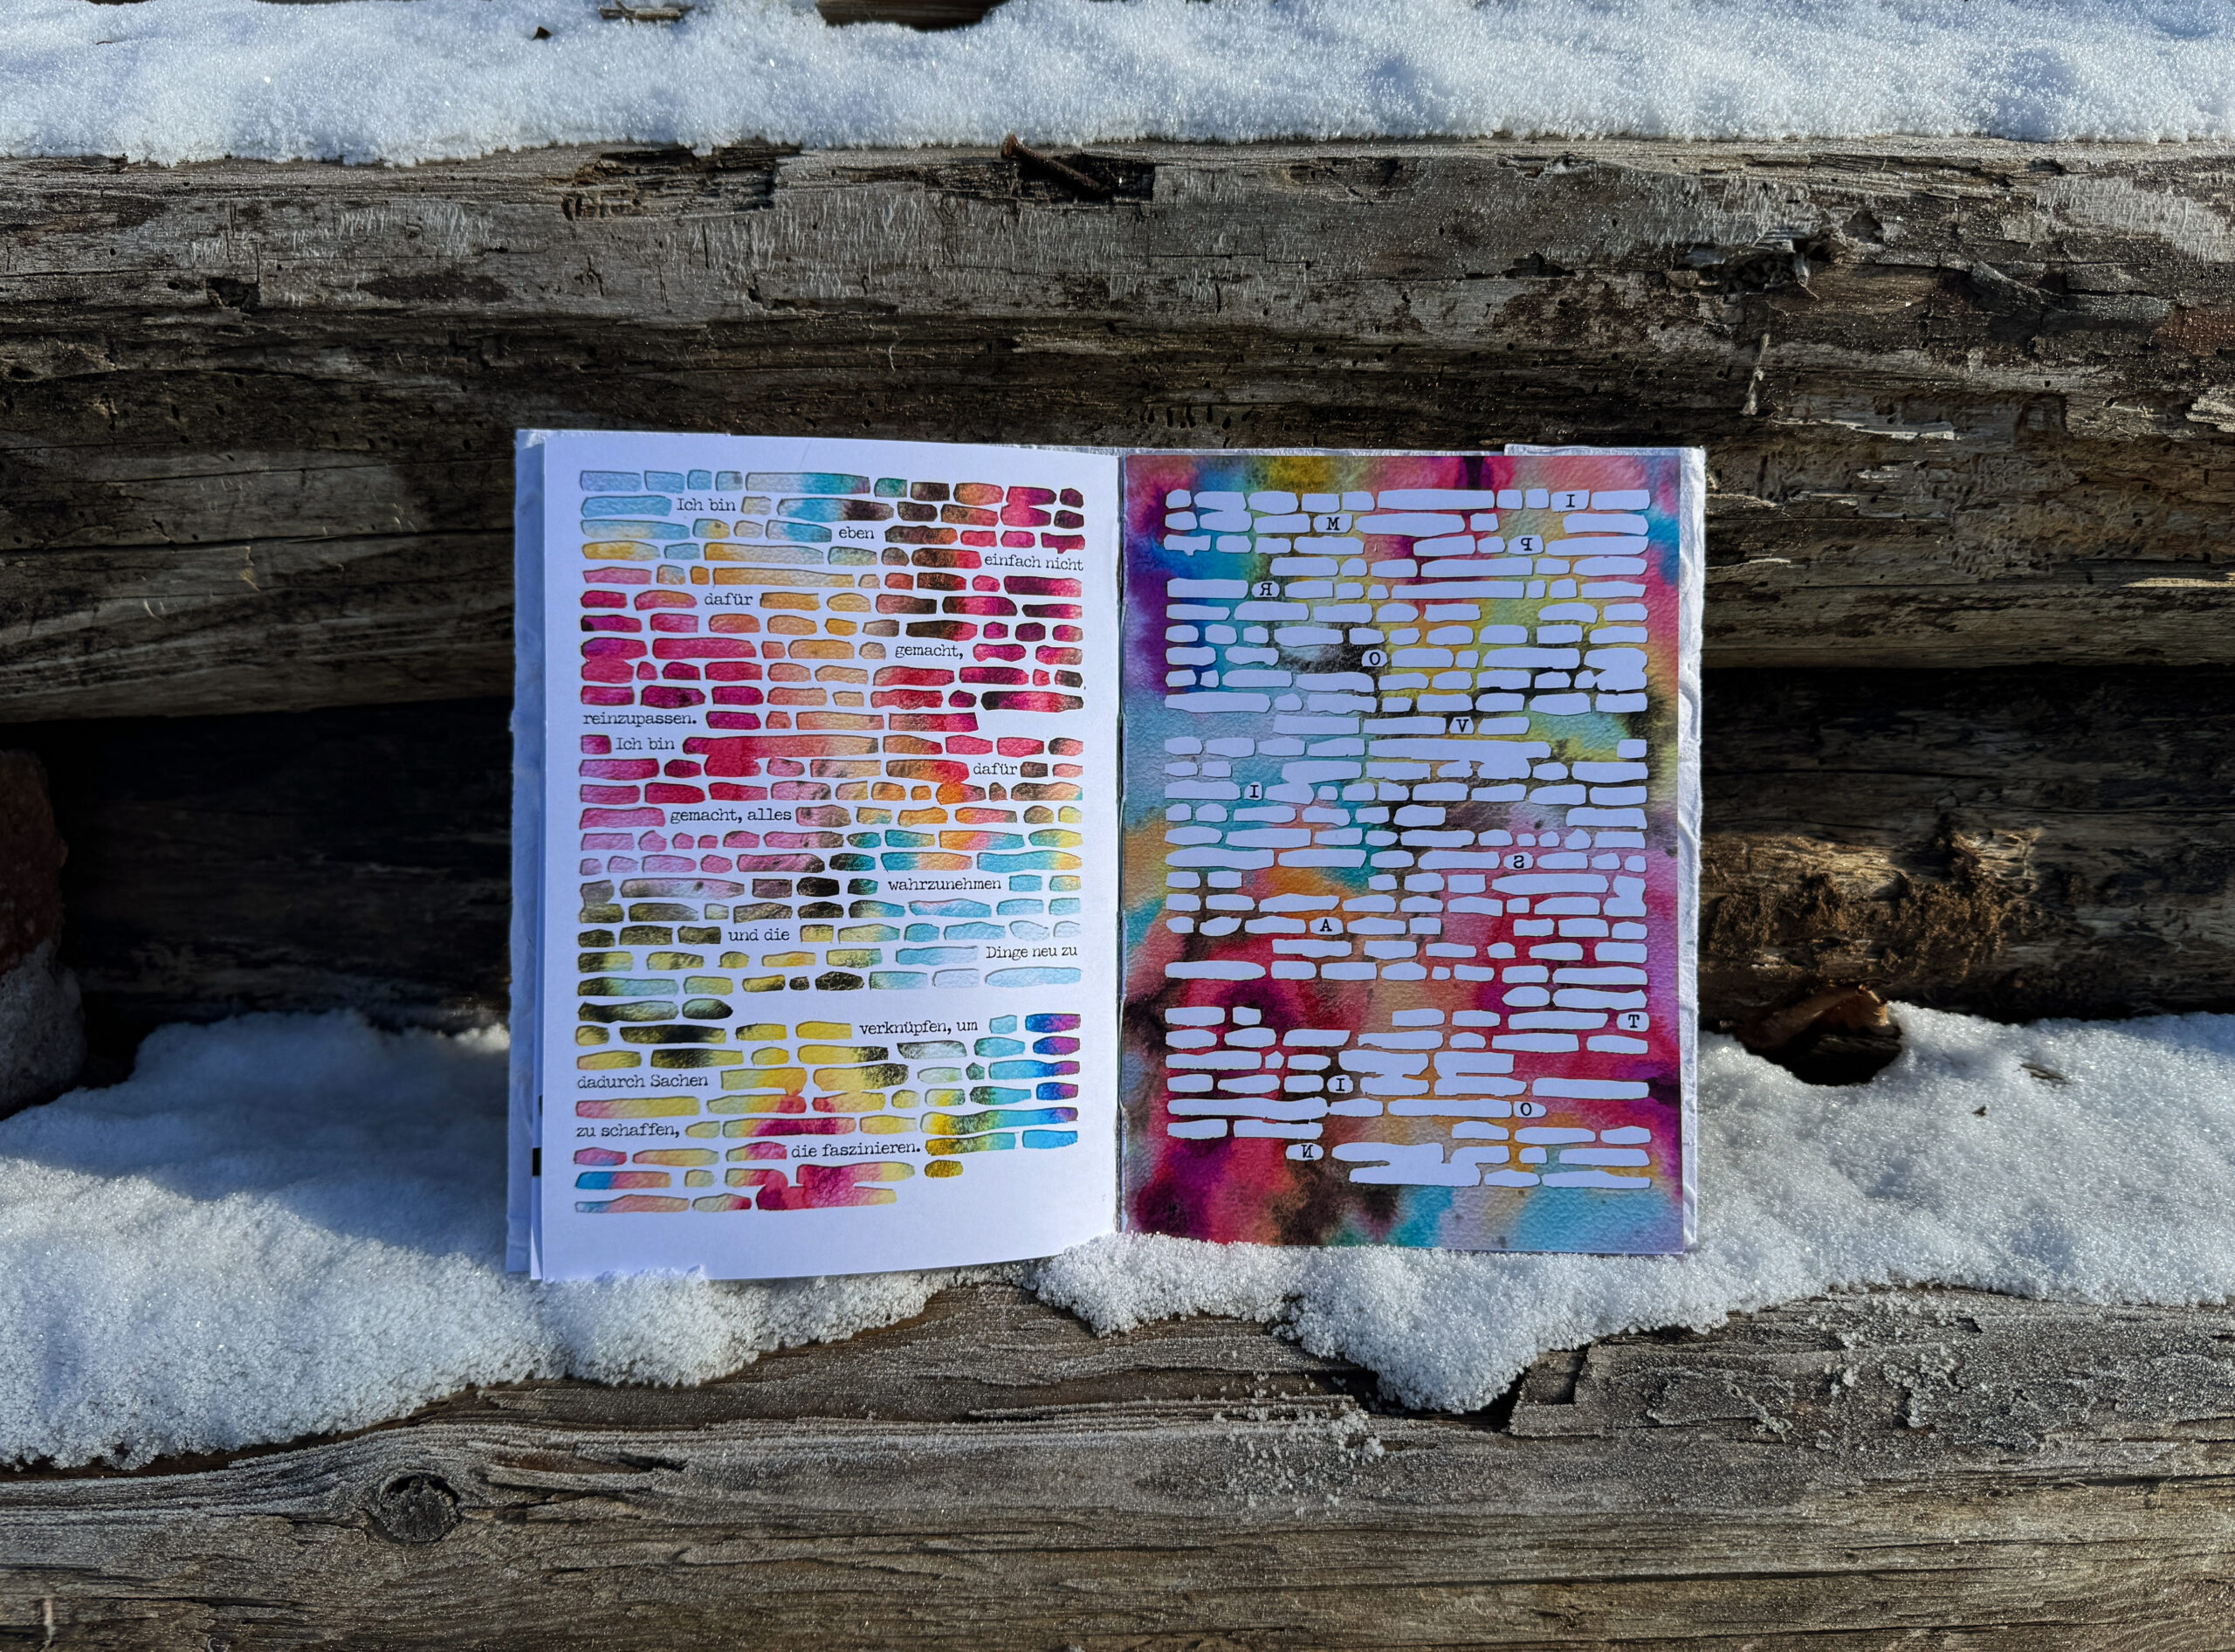 Ich bin
eben
einfach nicht
dafür
gemacht,
reinzupassen.
Ich bin
dafür
gemacht, alles
wahrzunehmen
und die
Dinge neu zu
verknüpfen, um
dadurch Sachen
zu schaffen,
die faszinieren.
I
M
P
R
O
V
I
S
A
T
I
O
N